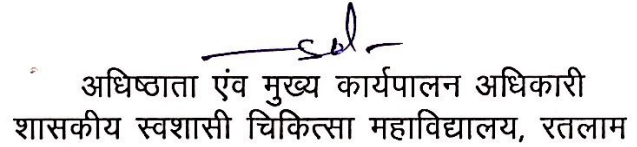 sd/-
अधिष्ठाता एंव मुख्य कार्यपालन अधिकारी
शासकीय स्वशासी चिकित्सा महाविद्यालय, रतलाम